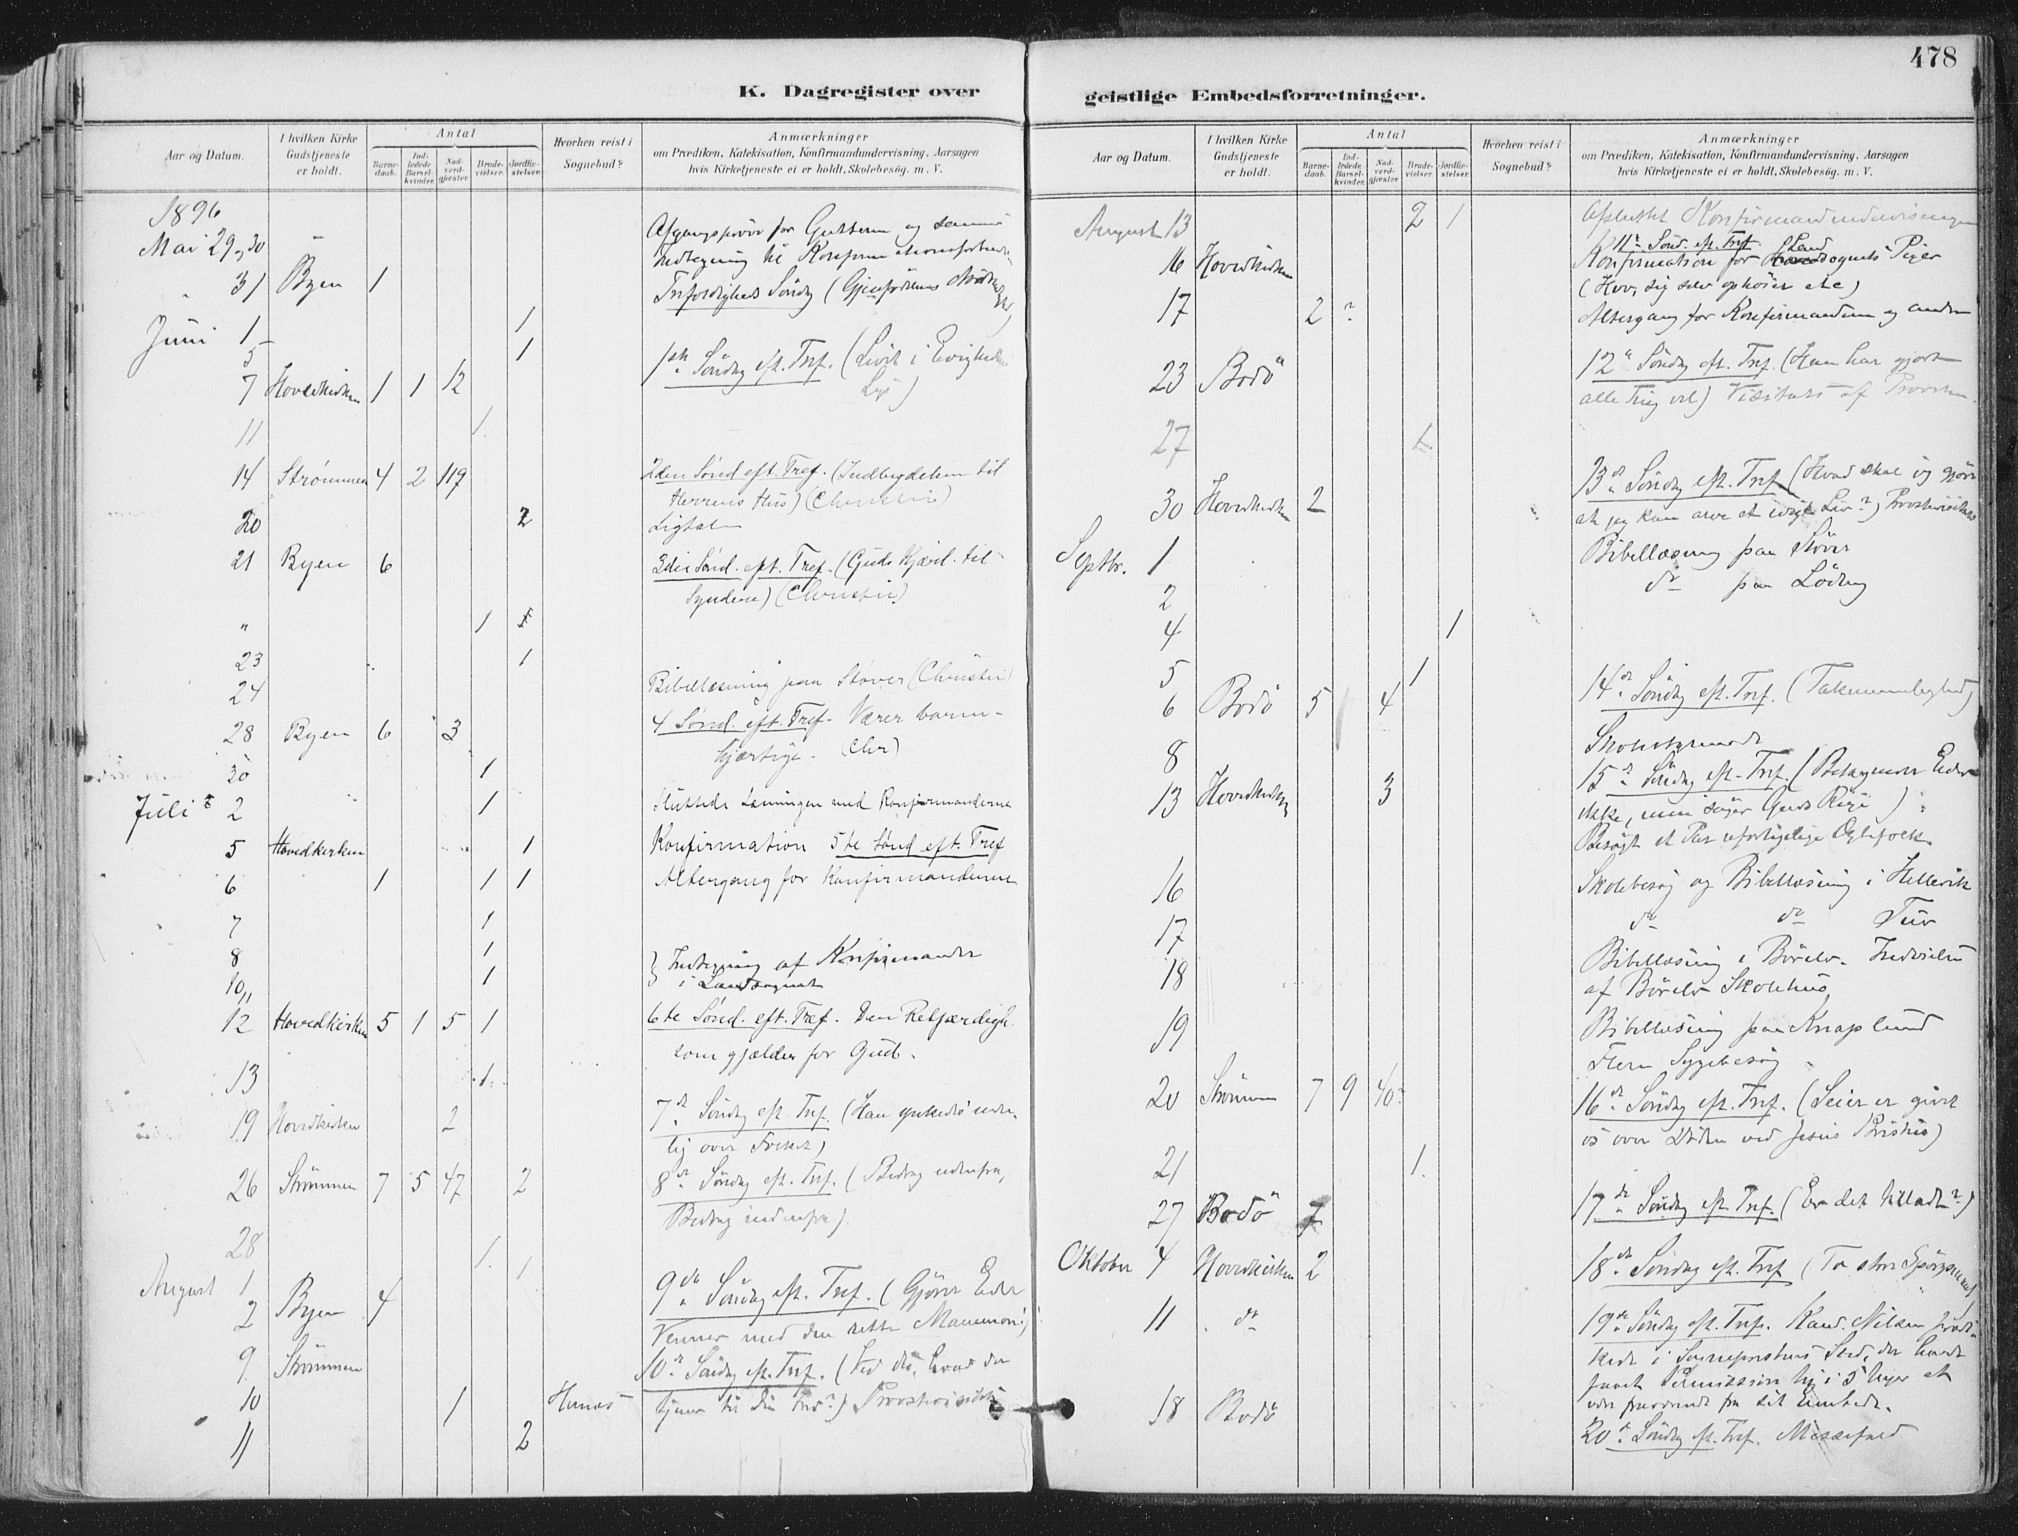 478
K. Dagregister over geistlige Embedsforretninger.
Aar og Datum.
I hvilken Kirke Gudstjeneste er holdt.
Antal
Barnedaab.
Indledede Barselkvinder.
Nadverdgjester.
Brudevielser.
Jordfæstelser.
Hvorhen reist i Sognebud?
Anmærkninger
om Prædiken, Katekisation, Konfirmandundervisning, Aarsagen
hvis Kirketjeneste ei er holdt, Skolebesøg. m. V.
1896
Mai 29, 30 Afgangsprøve for Gutterne og samme
Indtegning til Konfirmationsforbered
" 31 Byen 1 Trefoldigheds Søndag (Gjenfødelsens Nødv
Juni 1 1
5 1
7 Hovedkirken 1 1 12 1ste Søndag eft. Tref. (Livet i Evighedens
Lys)
11 1
14 Strømmen 4 2 119 2den Sønd eft. Tref. (Indbydelsen til
Herrens Hus) (Christie)
20 2 Ligtale
21 Byen 6 3die Sønd. eft. Tref. (Guds Kjærl. til
Syndere) (Christie)
" 1 1
23 1
24 Bibellæsning paa Støver (Christie)
28 Byen 6 3 4 Sønd. eft. Tref. Værer barm-
hjærtige. (Chr)
30 1
Juli 2 1 Sluttede Læsningen med Konfirmanderne
5 Hovedkirken 1 Konfirmation 5te Sønd eft. Tref
6 1 1 1 Altergang for Konfirmanderne
7 1
8 1 Indtegning af Konfirmander
10, 11 1 i Landsognet
12 Hovedkirken 5 1 5 1 6te Sønd. eft. Tref. Den Retfærdigh.
som gjælder for Gud.
13 1
19 Hovedkirken 2 7de Søndag eft. Tref. (Han ynkedes inder-
lig over Folket)
26 Strømmen 7 5 47 2 8de Søndag eft. Tref. (Bedrag udenfra,
Bedrag indenfra).
28 1
August 1 1
2 Byen 4 9de Søndag eft. Tref. (Gjører Eder
Venner med den rette Mammon)
9 Strømmen 10de Søndag eft. Tref. (Ved du, hvad der
10 1 Hernes tjener til din Fred?) Provstevisitats
11 2
K. Dagregister over geistlige Embedsforretninger.
Aar og Datum.
I hvilken Kirke Gudstjeneste er holdt.
Antal
Barnedaab.
Indledede Barselkvinder.
Nadverdgjester.
Brudevielser.
Jordfæstelser.
Hvorhen reist i Sognebud?
Anmærkninger
om Prædiken, Katekisation, Konfirmandundervisning, Aarsagen
hvis Kirketjeneste ei er holdt, Skolebesøg. m. V.
August 13 2 1 Afsluttet Konfirmandundervisningen
11te Sønd. eft. Tref.
16 Hovedkirken Konfirmation for Landsognets Piger
(Hver, sig selv ophøier etc)
17 2 ? Altergang for Konfirmanderne og andre
23 Bodö 12te Søndag eft. Tref. (Han har gjort
alle Ting vel) Visitats af Provsten.
27 1
30 Hovedkirken 2 13de Søndag eft. Tref (Hvad skal jeg gjøre
at jeg kan arve et evigt Liv?) Provstevisitats
Septbr. 1 Bibellæsning paa Støver
2 do paa Löding
4 1
5 1
6 Bodö 5 4 14de Søndag eft. Tref. (Taknemmelighed)
8 Skolestyremøde
13 Hovedkirken 3 15de Søndag eft. Tref. (Bekymrer Eder
ikke, men søger Guds Rige)
Besøgt et Par uforligelige Egtefolk.
16 Skolebesøg og Bibellæsning i Hellevik
17 do do Tuv
18 Bibellæsning i Börelv. Indvielse
af Börelv Skolehus
19 Bibellæsning paa Knaplund
Flere Sygebesøg
20 Strømmen 7 9 40 16de Søndag eft. Tref. (Seier er givet
os over Døden ved Jesus Kristus)
21 1
27 Bodö 7 17de Søndag eft. Tref. (Er det tilladt?)
Oktober 4 Hovedkirken 2 18de Søndag eft. Tref (To store Spörgsmaal)
11 do 19de Søndag eft. Tref. Kand. Nilsen prædi-
kede i Sognepræstens Sted, der havde
faaet Permission til i 3 Uger at
være fraværende fra sit Embede.
18 Bodö 20de Søndag eft. Tref. Messefald